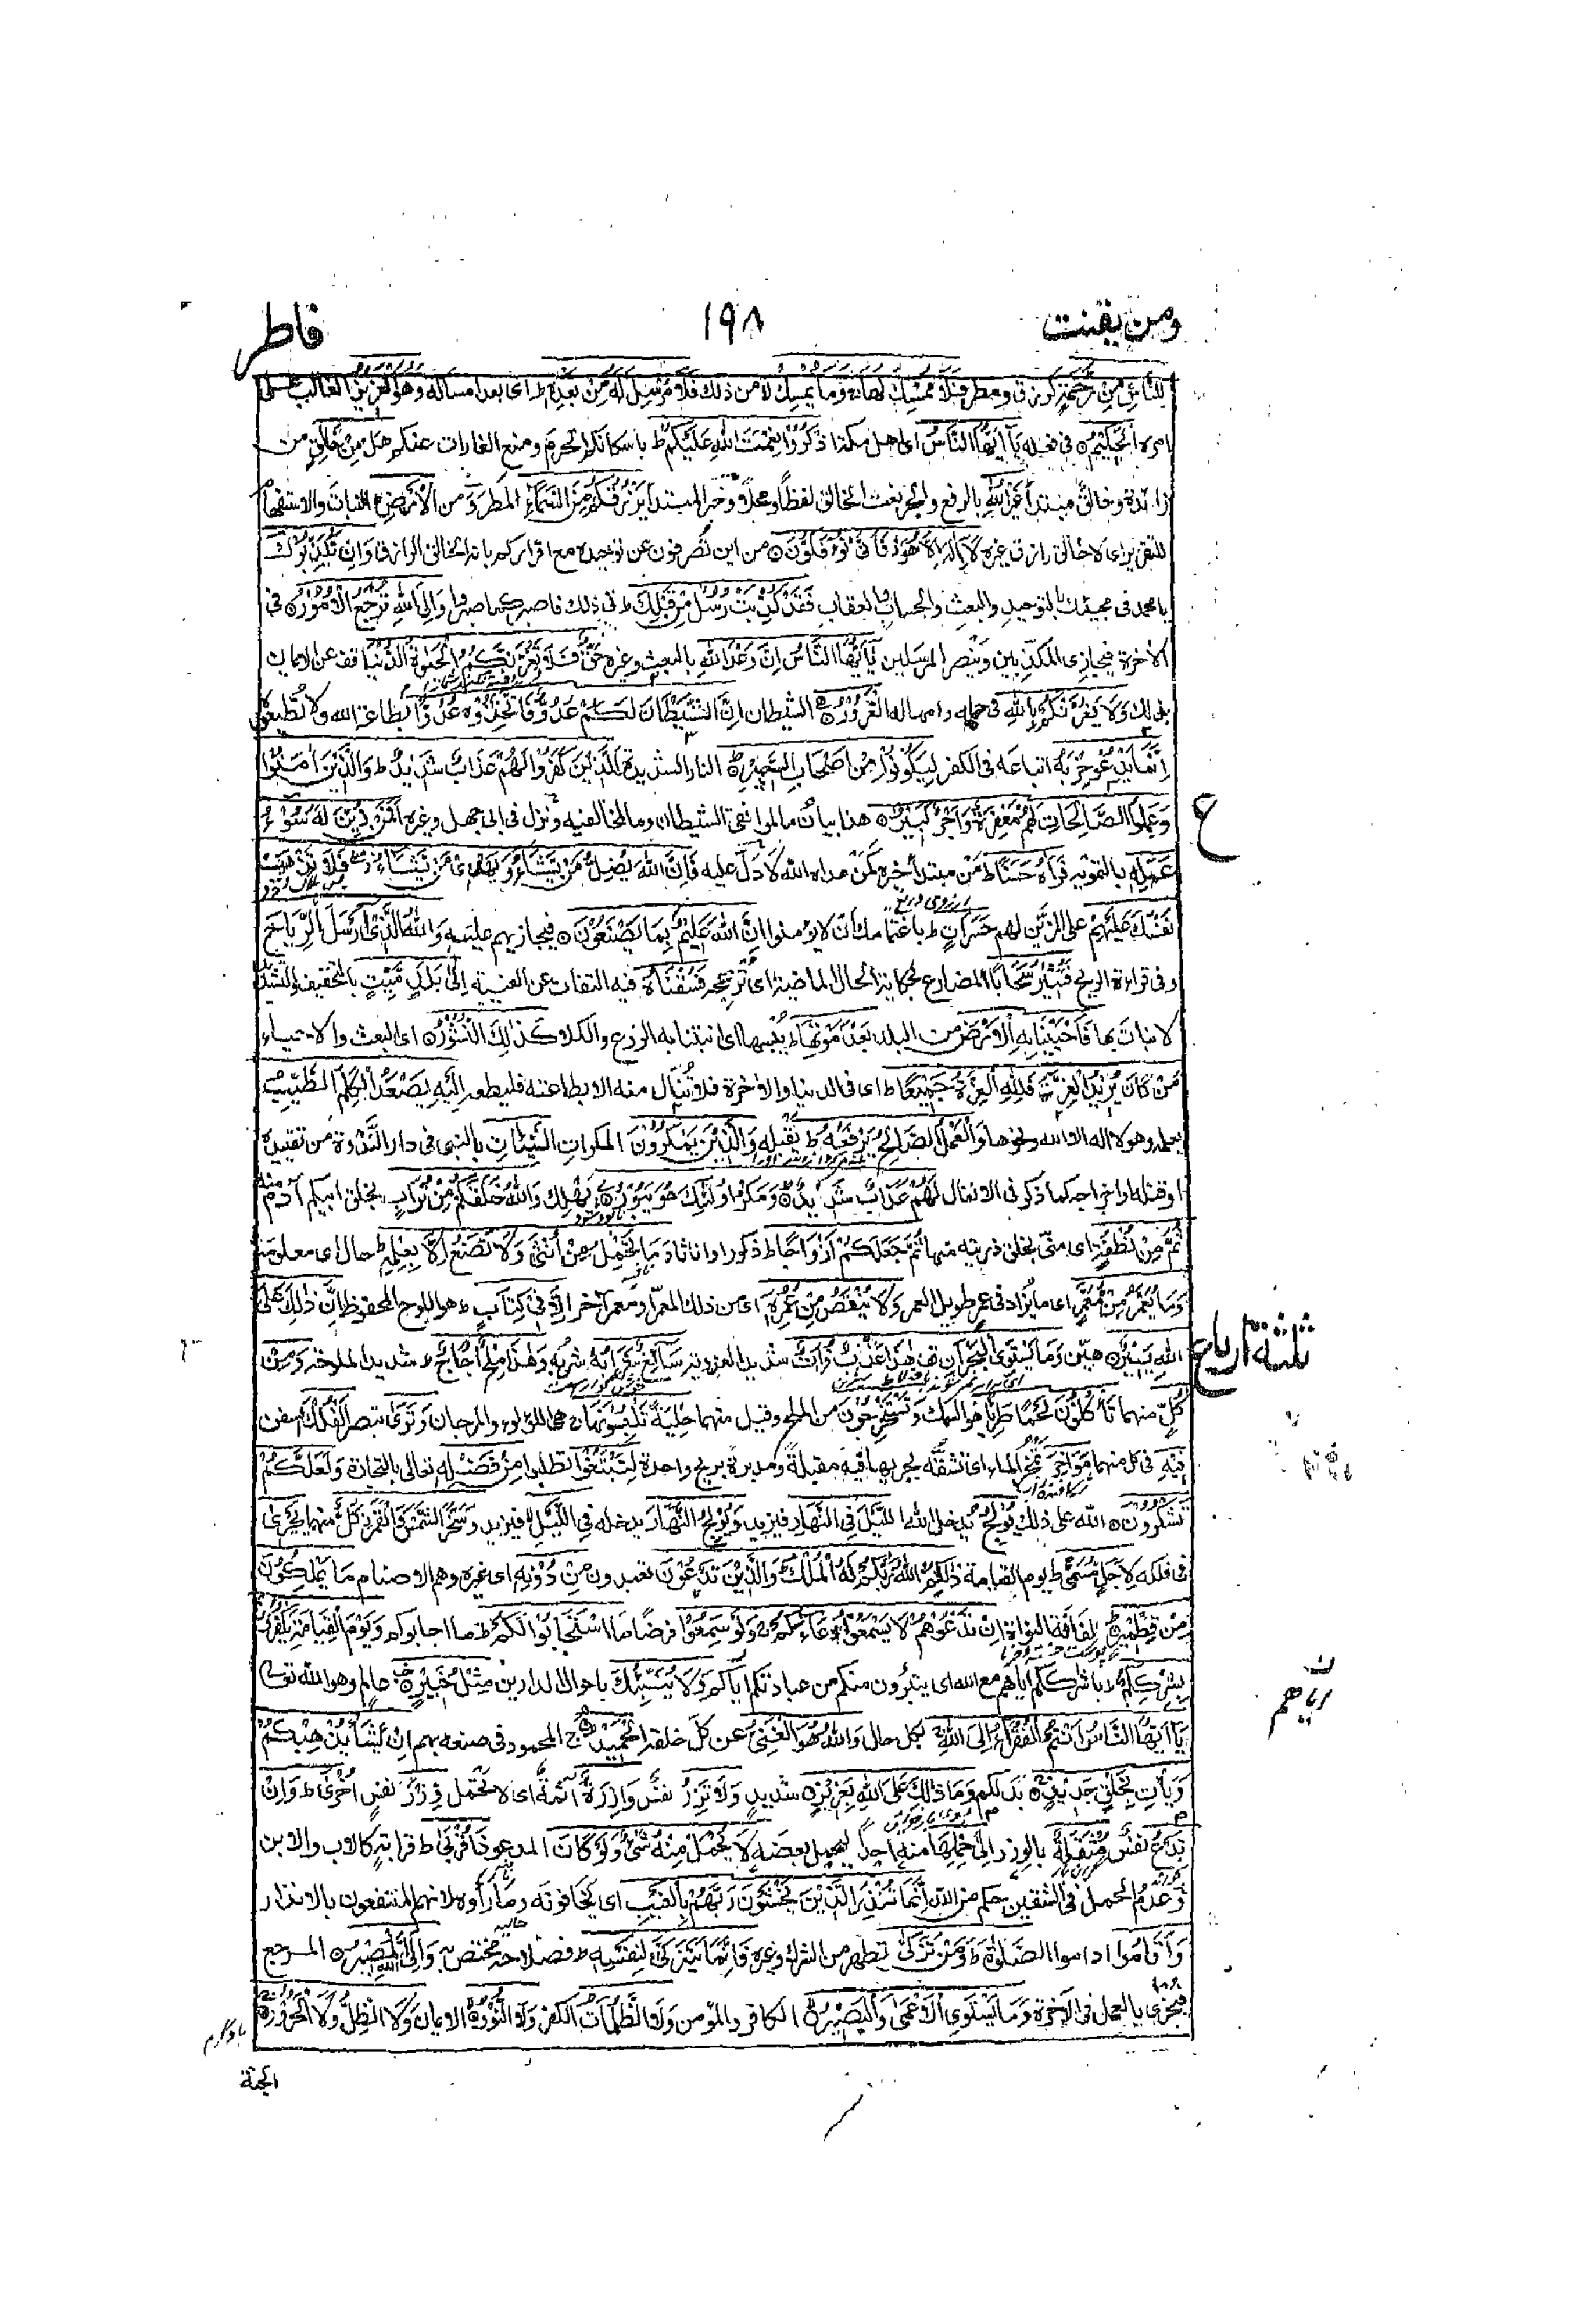 ومن يقنت ١٩٨ فاطر
لِلنَّاسِ مِنْ رَّحْمَةٍ كرزق ومطر فَلَا مُمْسِكَ لَهَا وَمَا يُمْسِكْ لا من ذلك فَلَا مُرْسِلَ لَهُ مِنْ بَعْدِهٖ ط اى بعد امساكه وَهُوَ الْعَزِيْزُ الغالب على
امره الْحَكِيْمُ ٥ فى فعله يٰۤاَيُّهَا النَّاسُ اى اهل مكة اذْكُرُوْا نِعْمَتَ اللّٰهِ عَلَيْكُمْ ط باسكانكم الحرم ومنع الغارات عنكم هَلْ مِنْ خَالِقٍ من
زائدة وخالق مبتدأ غَيْرُ اللّٰهِ بالرفع والجر نعت لخالق لفظًا ومحلًا وخبر المبتدأ يَرْزُقُكُمْ مِّنَ السَّمَاءِ المطر وَ من الْاَرْضِ النبات والاستفهام
للتقرير اى لا خالق رازق غيره لَا اِلٰهَ اِلَّا هُوَ فَاَنّٰى تُؤْفَكُوْنَ ٥ من اين تصرفون عن توحيده مع اقراركم بانه الخالق الرازق وَاِنْ يُّكَذِّبُوْكَ
يا محمد فى مجيئك بالتوحيد والبعث والحساب والعقاب فَقَدْ كُذِّبَتْ رُسُلٌ مِّنْ قَبْلِكَ ط فى ذلك فاصبر كما صبروا وَاِلَى اللّٰهِ تُرْجَعُ الْاُمُوْرُ ٥ فى
الاخرة فيجازى المكذبين وينصر المرسلين يٰۤاَيُّهَا النَّاسُ اِنَّ وَعْدَ اللّٰهِ بالبعث وغيره حَقٌّ فَلَا تَغُرَّنَّكُمُ الْحَيٰوةُ الدُّنْيَا قف عن الايمان
بذلك وَلَا يَغُرَّنَّكُمْ بِاللّٰهِ فى حلمه وامهاله الْغَرُوْرُ ٥ الشيطان اِنَّ الشَّيْطَانَ لَكُمْ عَدُوٌّ فَاتَّخِذُوْهُ عَدُوًّا بطاعة الله ولا تطيعوه
اِنَّمَا يَدْعُوْ حِزْبَهٗ اتباعه فى الكفر لِيَكُوْنُوْا مِنْ اَصْحَابِ السَّعِيْرِ ٥ النار الشديدة اَلَّذِيْنَ كَفَرُوْا لَهُمْ عَذَابٌ شَدِيْدٌ ط وَالَّذِيْنَ اٰمَنُوْا
وَعَمِلُوا الصّٰلِحَاتِ لَهُمْ مَّغْفِرَةٌ وَّاَجْرٌ كَبِيْرٌ ٥ هذا بيان ما لموافقى الشيطان وما لمخالفيه ونزل فى ابى جهل وغيره اَفَمَنْ زُيِّنَ لَهٗ سُوْءُ
ع
عَمَلِهٖ بالتمويه فَرَاٰهُ حَسَنًا ط من مبتدأ خبره كمن هداه الله لا دل عليه فَاِنَّ اللّٰهَ يُضِلُّ مَنْ يَّشَآءُ وَيَهْدِىْ مَنْ يَّشَآءُ فَلَا تَذْهَبْ
نَفْسُكَ عَلَيْهِمْ على المزين لهم حَسَرَاتٍ ط باغتمامك ان لا يؤمنوا اِنَّ اللّٰهَ عَلِيْمٌ بِمَا يَصْنَعُوْنَ ٥ فيجازيهم عليه وَاللّٰهُ الَّذِىْ اَرْسَلَ الرِّيَاحَ
وفى قراءة الريح فَتُثِيْرُ سَحَابًا المضارع لحكاية الحال الماضية اى تزعجه فَسُقْنَاهُ فيه التفات عن الغيبة اِلٰى بَلَدٍ مَّيِّتٍ بالتخفيف والتشديد
لا نبات بها فَاَحْيَيْنَا بِهِ الْاَرْضَ من البلد بَعْدَ مَوْتِهَا ط يبسها اى انبتنا به الزرع والكلاء كَذٰلِكَ النُّشُوْرُ ٥ اى البعث والاحياء
مَنْ كَانَ يُرِيْدُ الْعِزَّةَ فَلِلّٰهِ الْعِزَّةُ جَمِيْعًا ط اى فى الدنيا والاخرة فلا تنال منه الا بطاعته فليطعه اِلَيْهِ يَصْعَدُ الْكَلِمُ الطَّيِّبُ
يعلمه وهو لا اله الا الله ونحوها وَالْعَمَلُ الصَّالِحُ يَرْفَعُهٗ ط يقبله وَالَّذِيْنَ يَمْكُرُوْنَ المكرات السَّيِّئَاتِ بالنبى فى دار الندوة من تقييده
او قتله او اخراجه كما ذكر فى الانفال لَهُمْ عَذَابٌ شَدِيْدٌ ط وَمَكْرُ اُولٰٓئِكَ هُوَ يَبُوْرُ ٥ يهلك وَاللّٰهُ خَلَقَكُمْ مِّنْ تُرَابٍ بخلق ابيكم آدم منه
ثُمَّ مِنْ نُّطْفَةٍ اى منى بخلق ذريته منها ثُمَّ جَعَلَكُمْ اَزْوَاجًا ط ذكورا واناثا وَمَا تَحْمِلُ مِنْ اُنْثٰى وَلَا تَضَعُ اِلَّا بِعِلْمِهٖ ط حال اى معلومة
وَمَا يُعَمَّرُ مِنْ مُّعَمَّرٍ اى ما يزاد فى عمر طويل العمر وَلَا يُنْقَصُ مِنْ عُمُرِهٖ اى من ذلك المعمر او معمر آخر اِلَّا فِىْ كِتَابٍ ط هو اللوح المحفوظ اِنَّ ذٰلِكَ عَلَى
ثلثة ارباع
اللّٰهِ يَسِيْرٌ ٥ هين وَمَا يَسْتَوِى الْبَحْرَانِ هٰذَا عَذْبٌ فُرَاتٌ شديد العذوبة سَآئِغٌ شَرَابُهٗ شربه وَهٰذَا مِلْحٌ اُجَاجٌ ط شديد الملوحة وَمِنْ
كُلٍّ منهما تَاْكُلُوْنَ لَحْمًا طَرِيًّا هو السمك وَتَسْتَخْرِجُوْنَ من الملح وقيل منهما حِلْيَةً تَلْبَسُوْنَهَا هى اللؤلؤ والمرجان وَتَرَى تبصر الْفُلْكَ السفن
فِيْهِ فى كل منهما مَوَاخِرَ تمخر الماء اى تشقه بجريها فيه مقبلة ومدبرة بريح واحدة لِتَبْتَغُوْا تطلبوا مِنْ فَضْلِهٖ تعالى بالتجارة وَلَعَلَّكُمْ
تَشْكُرُوْنَ ٥ الله على ذلك يُوْلِجُ يدخل الله اللَّيْلَ فِى النَّهَارِ فيزيد وَيُوْلِجُ النَّهَارَ يدخله فِى اللَّيْلِ فيزيد وَسَخَّرَ الشَّمْسَ وَالْقَمَرَ كُلٌّ منهما يَّجْرِىْ
فى فلكه لِاَجَلٍ مُّسَمًّى ط يوم القيامة ذٰلِكُمُ اللّٰهُ رَبُّكُمْ لَهُ الْمُلْكُ وَالَّذِيْنَ تَدْعُوْنَ تعبدون مِنْ دُوْنِهٖ اى غيره وهم الاصنام مَا يَمْلِكُوْنَ
مِنْ قِطْمِيْرٍ لفافة النواة اِنْ تَدْعُوْهُمْ لَا يَسْمَعُوْا دُعَآءَكُمْ وَلَوْ سَمِعُوْا فرضًا مَا اسْتَجَابُوْا لَكُمْ ط ما اجابوكم وَيَوْمَ الْقِيَامَةِ يَكْفُرُوْنَ
بِشِرْكِكُمْ باشراككم اياهم مع الله اى يتبرؤن منكم من عبادتكم اياهم وَلَا يُنَبِّئُكَ باحوال الدارين مِثْلُ خَبِيْرٍ ٥ عالم وهو الله تعالى
اياهم
يٰۤاَيُّهَا النَّاسُ اَنْتُمُ الْفُقَرَآءُ اِلَى اللّٰهِ بكل حال وَاللّٰهُ هُوَ الْغَنِىُّ عن كل خلقه الْحَمِيْدُ ٥ المحمود فى صنعه بهم اِنْ يَّشَاْ يُذْهِبْكُمْ
وَيَاْتِ بِخَلْقٍ جَدِيْدٍ ٥ بدلكم وَمَا ذٰلِكَ عَلَى اللّٰهِ بِعَزِيْزٍ ٥ شديد وَلَا تَزِرُ نفس وَازِرَةٌ آثمة اى لا تحتمل وِزْرَ نفس اُخْرٰى ط وَاِنْ
تَدْعُ نفس مُثْقَلَةٌ بالوزر اِلٰى حِمْلِهَا منه احد ليحمل بعضه لَا يُحْمَلْ مِنْهُ شَىْءٌ وَّلَوْ كَانَ المدعو ذَا قُرْبٰى ط قرابة كالاب والابن
وعدم الحمل فى الشقين حكم من الله اِنَّمَا تُنْذِرُ الَّذِيْنَ يَخْشَوْنَ رَبَّهُمْ بِالْغَيْبِ اى يخافونه وما رأوه لانهم المنتفعون بالانذار
وَاَقَامُوا اداموا الصَّلٰوةَ ط وَمَنْ تَزَكّٰى تطهر من الشرك وغيره فَاِنَّمَا يَتَزَكّٰى لِنَفْسِهٖ ط فصلاحه مختص به وَاِلَى اللّٰهِ الْمَصِيْرُ ٥ المرجع
فيجزى بالعمل فى الآخرة وَمَا يَسْتَوِى الْاَعْمٰى وَالْبَصِيْرُ ٥ الكافر والمؤمن وَلَا الظُّلُمَاتُ الكفر وَلَا النُّوْرُ ٥ الايمان وَلَا الظِّلُّ وَلَا الْحَرُوْرُ ٥
الجنة